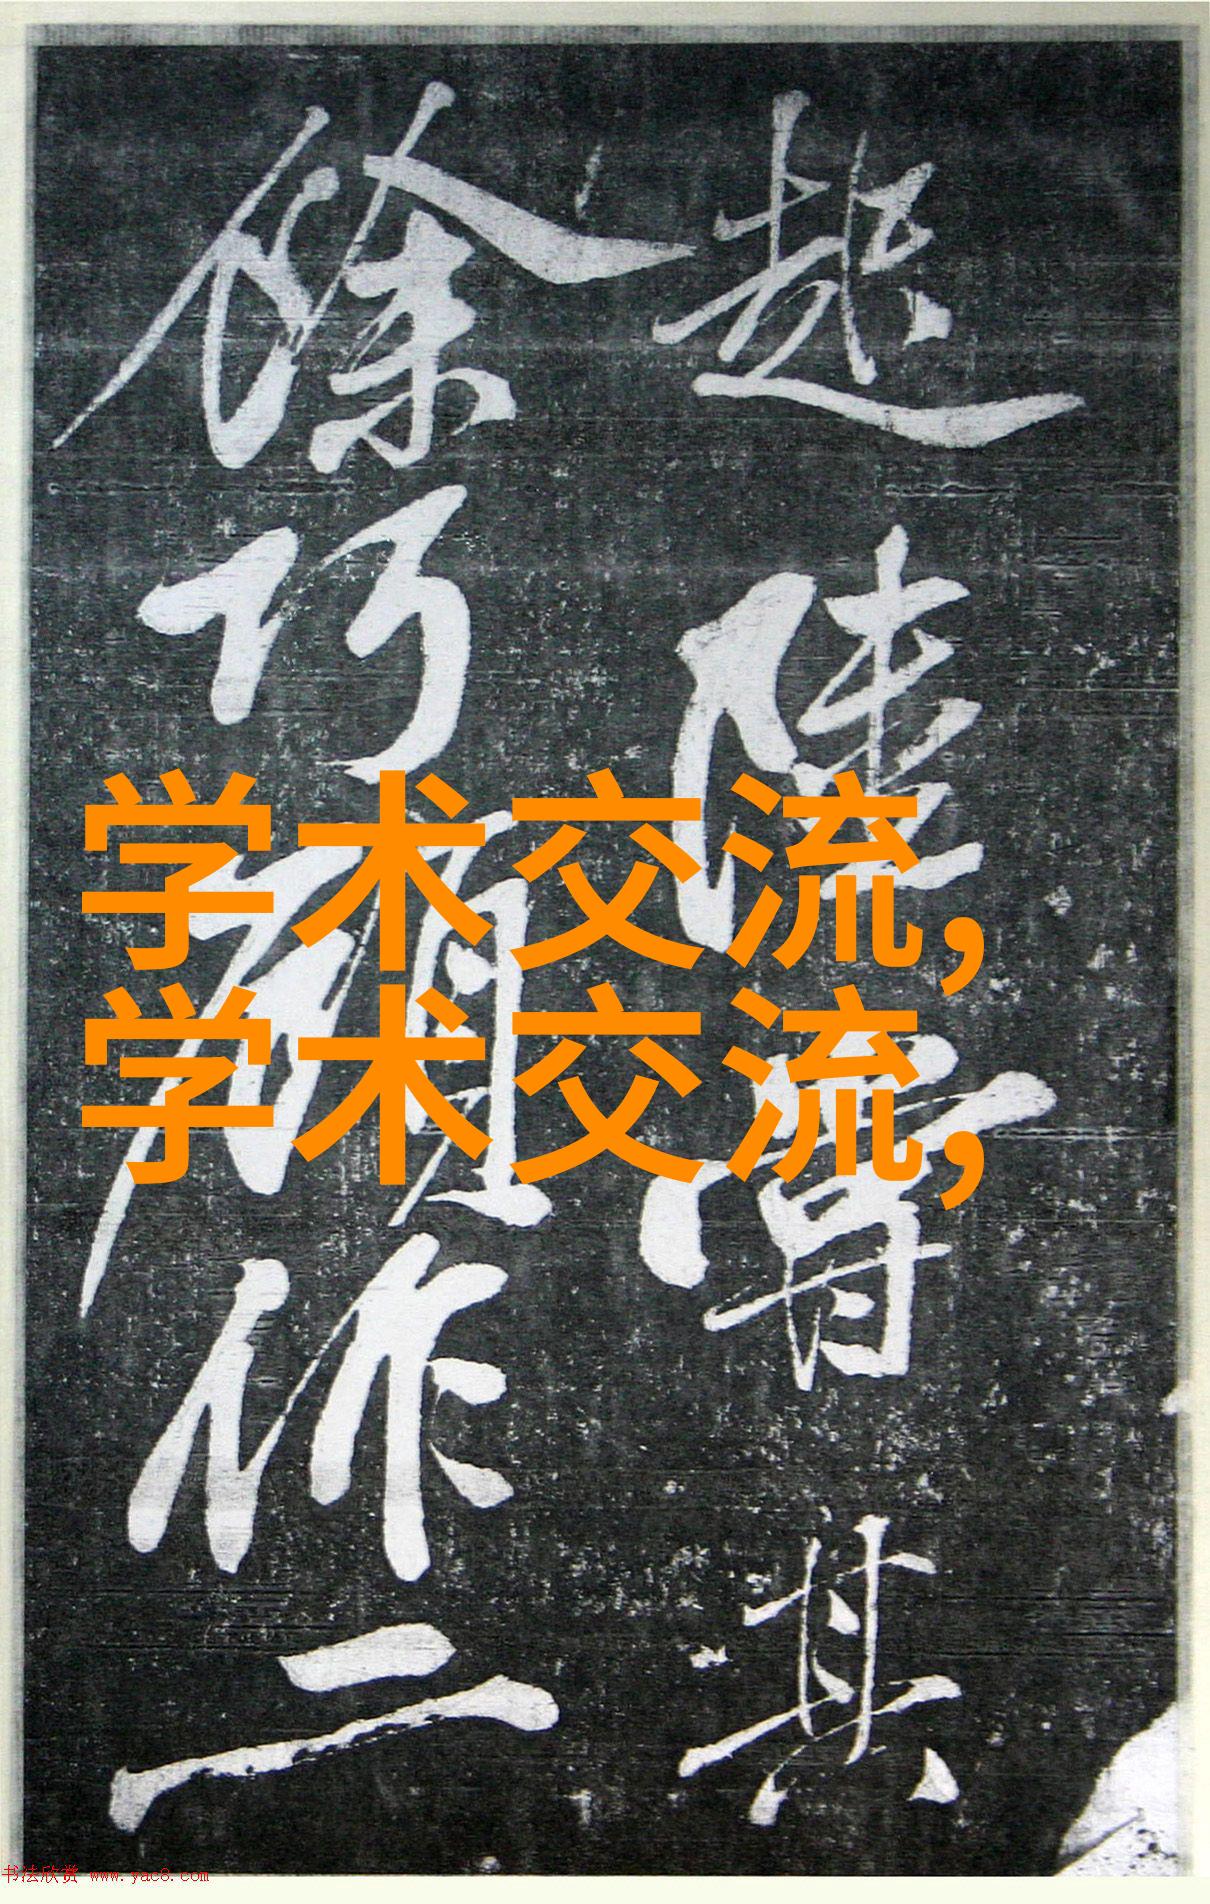 陸其
巧顧作二
学术交流,
学术交流,
书法欣赏 www.yac8.com